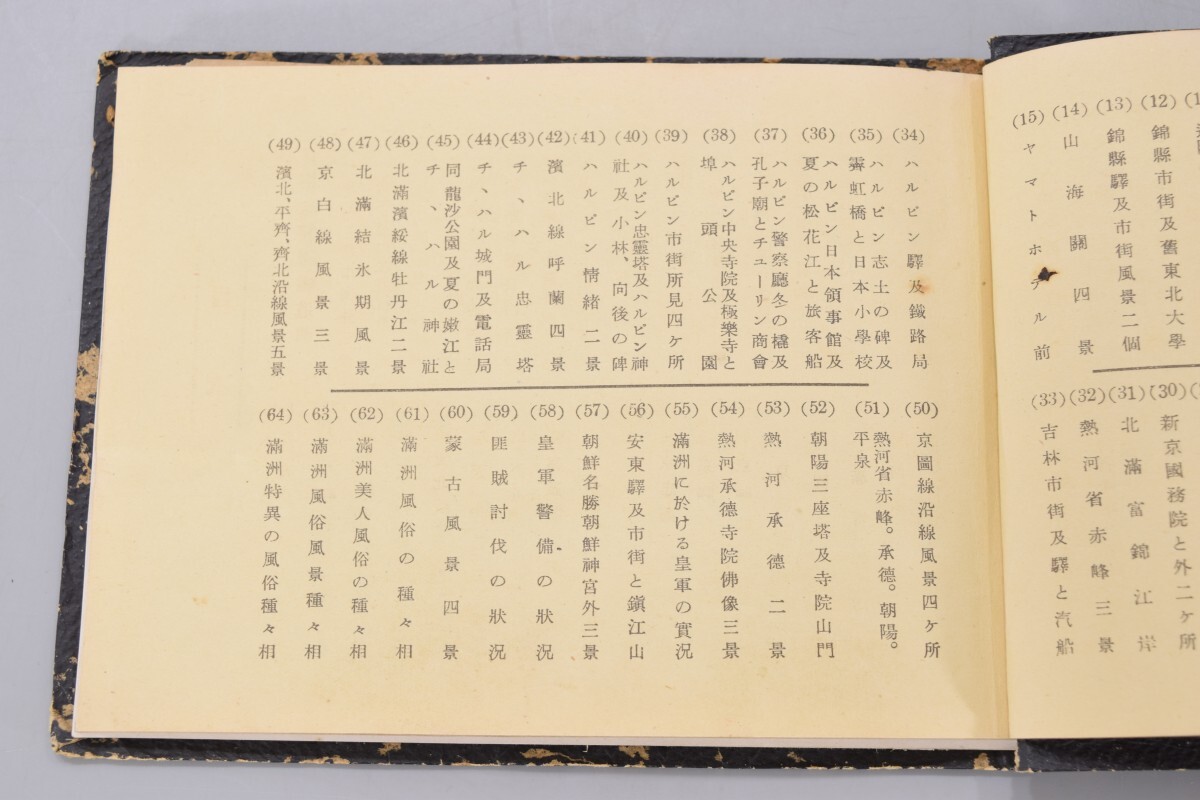 (12) 錦縣市街及舊東北大學
(13) 錦縣驛及市街風景二個
(14) 山海關四景
(15) ヤマトホテル前
(30) 新京國務院と外二ケ所
(31) 北滿富錦江岸
(32) 熱河省赤峰三景
(33) 吉林市街及驛と汽船
(34) ハルピン驛及鐵路局
(35) ハルピン志士の碑及
霽虹橋と日本小學校
(36) ハルピン日本領事館及
夏の松花江と旅客船
(37) ハルピン警察廳冬の橇及
孔子廟とチューリン商會
(38) ハルピン中央寺院及極樂寺と
埠頭公園
(39) ハルピン市街所見四ケ所
(40) ハルピン忠靈塔及ハルピン神
社及小林、向後の碑
(41) ハルピン情緒二景
(42) 濱北線呼蘭四景
(43) チ、ハル忠靈塔
(44) チ、ハル城門及電話局
(45) 同龍沙公園及夏の嫩江と
チ、ハル神社
(46) 北滿濱綏線牡丹江二景
(47) 北滿結氷期風景
(48) 京白線風景三景
(49) 濱北、平齊、齊北沿線風景五景
(50) 京圖線沿線風景四ケ所
(51) 熱河省赤峰。承德。朝陽。
平泉
(52) 朝陽三座塔及寺院山門
(53) 熱河承德二景
(54) 熱河承德寺院佛像三景
(55) 滿洲に於ける皇軍の實況
(56) 安東驛及市街と鎭江山
(57) 朝鮮名勝朝鮮神宮外三景
(58) 皇軍警備の狀況
(59) 匪賊討伐の狀況
(60) 蒙古風景四景
(61) 滿洲風俗の種々相
(62) 滿洲美人風俗の種々相
(63) 滿洲風俗風景種々相
(64) 滿洲特異の風俗種々相